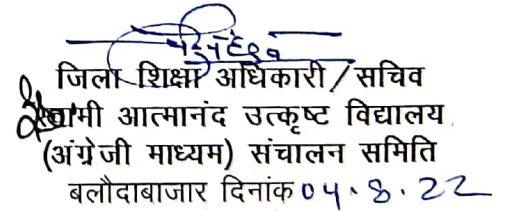 जिला शिक्षा अधिकारी/सचिव
स्वामी आत्मानंद उत्कृष्ट विद्यालय
(अंग्रेजी माध्यम) संचालन समिति
बलौदाबाजार दिनांक 04.8.22